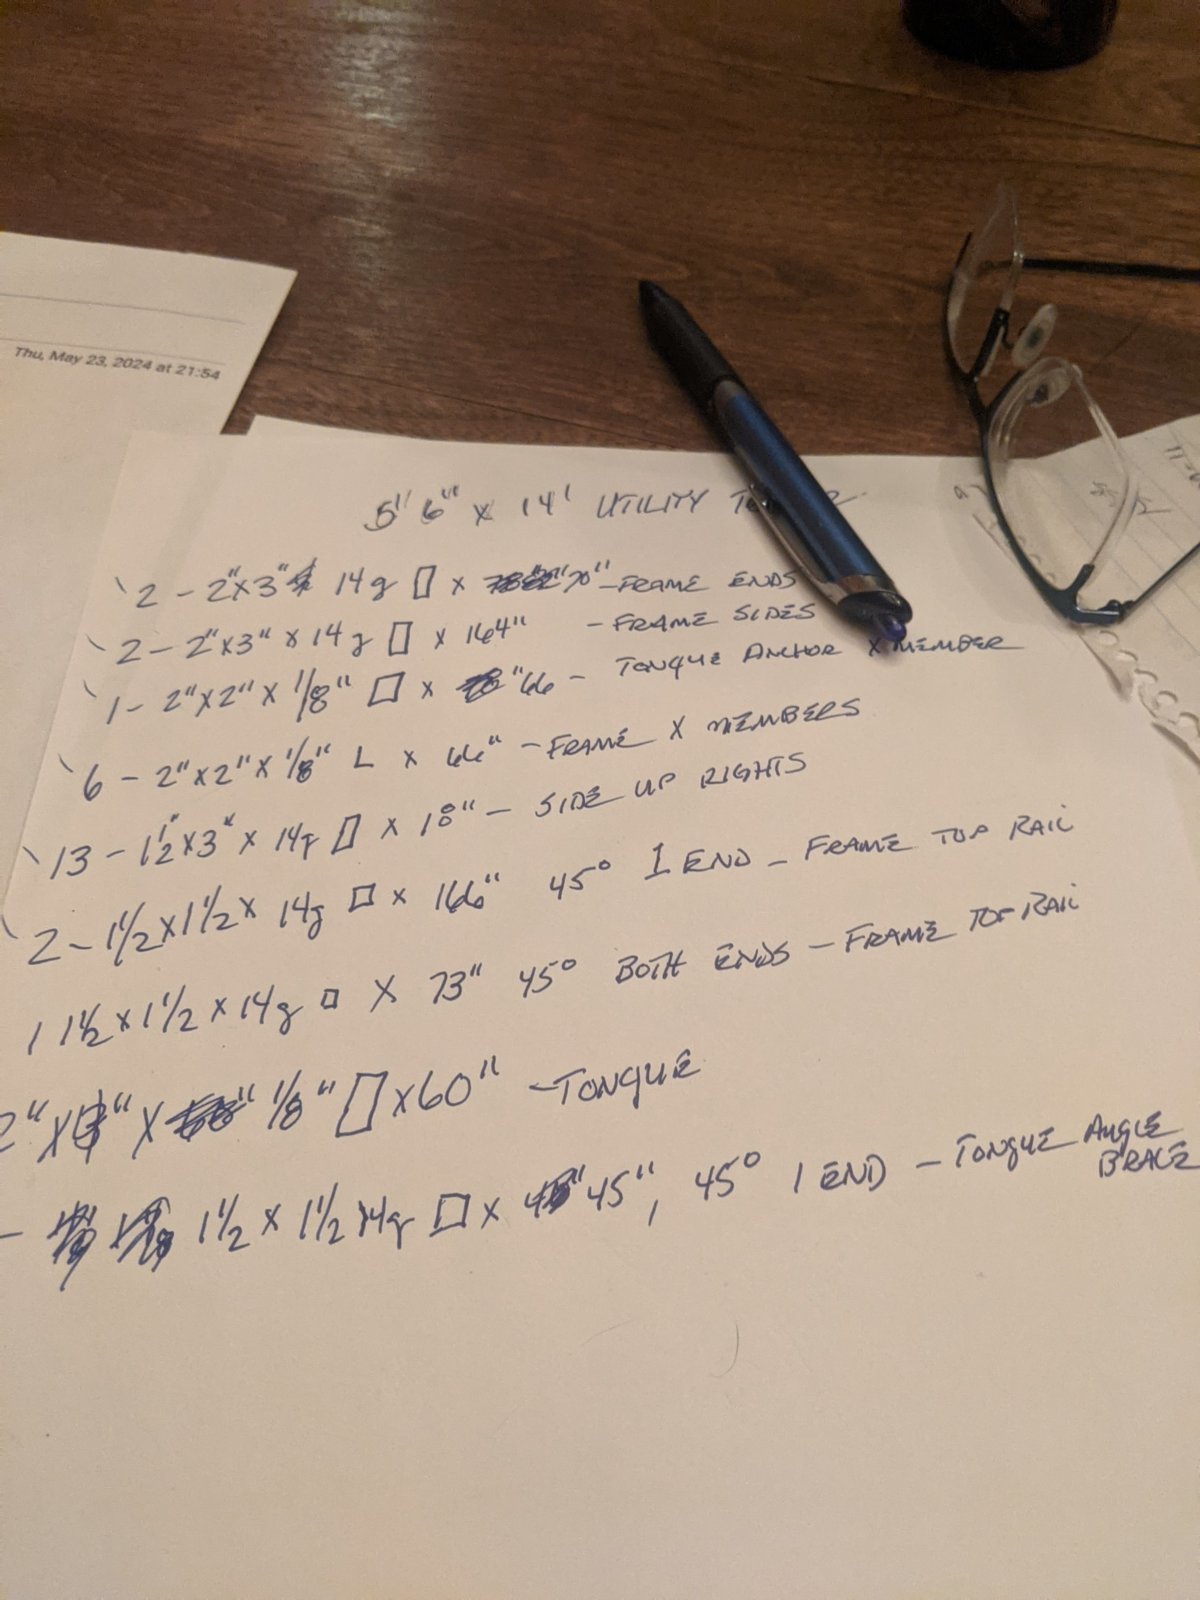 Thu, May 23, 2024 at 21:54
5" 6" x 14' UTILITY
2 - 2"x3" 14g ▯ x 70" - FRAME ENDS
2 - 2"x3" x 14g ▯ x 164" - FRAME SIDES
1 - 2"x2" x 1/8" □ x "66 - TONGUE ANCHOR X MEMBER
6 - 2"x2"x 1/8" L x 66" - FRAME X MEMBERS
13 - 1 1/2"x3" x 14g ▯ x 18" - SIDE UP RIGHTS
2 - 1 1/2 x 1 1/2 x 14g □ x 166" 45° 1 END - FRAME TOP RAIL
1 1 1/2 x 1 1/2 x 14g □ X 73" 45° BOTH ENDS - FRAME TOP RAIL
2" x " X 1/8" ▯ x 60" - TONGUE
- 1 1/2 x 1 1/2 14g □ x 45", 45° 1 END - TONGUE ANGLE
BRACE